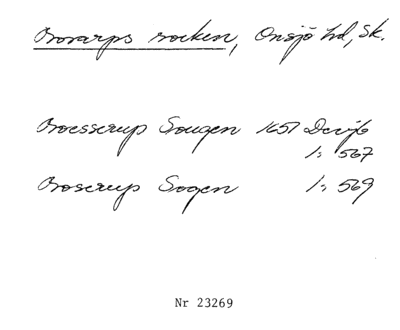 Bosarps socken, Onsjö hd, Sk.
Boesserup Sougen 1651 Decijb
1: 567
Boserup Sogen 1: 569
Nr 23269